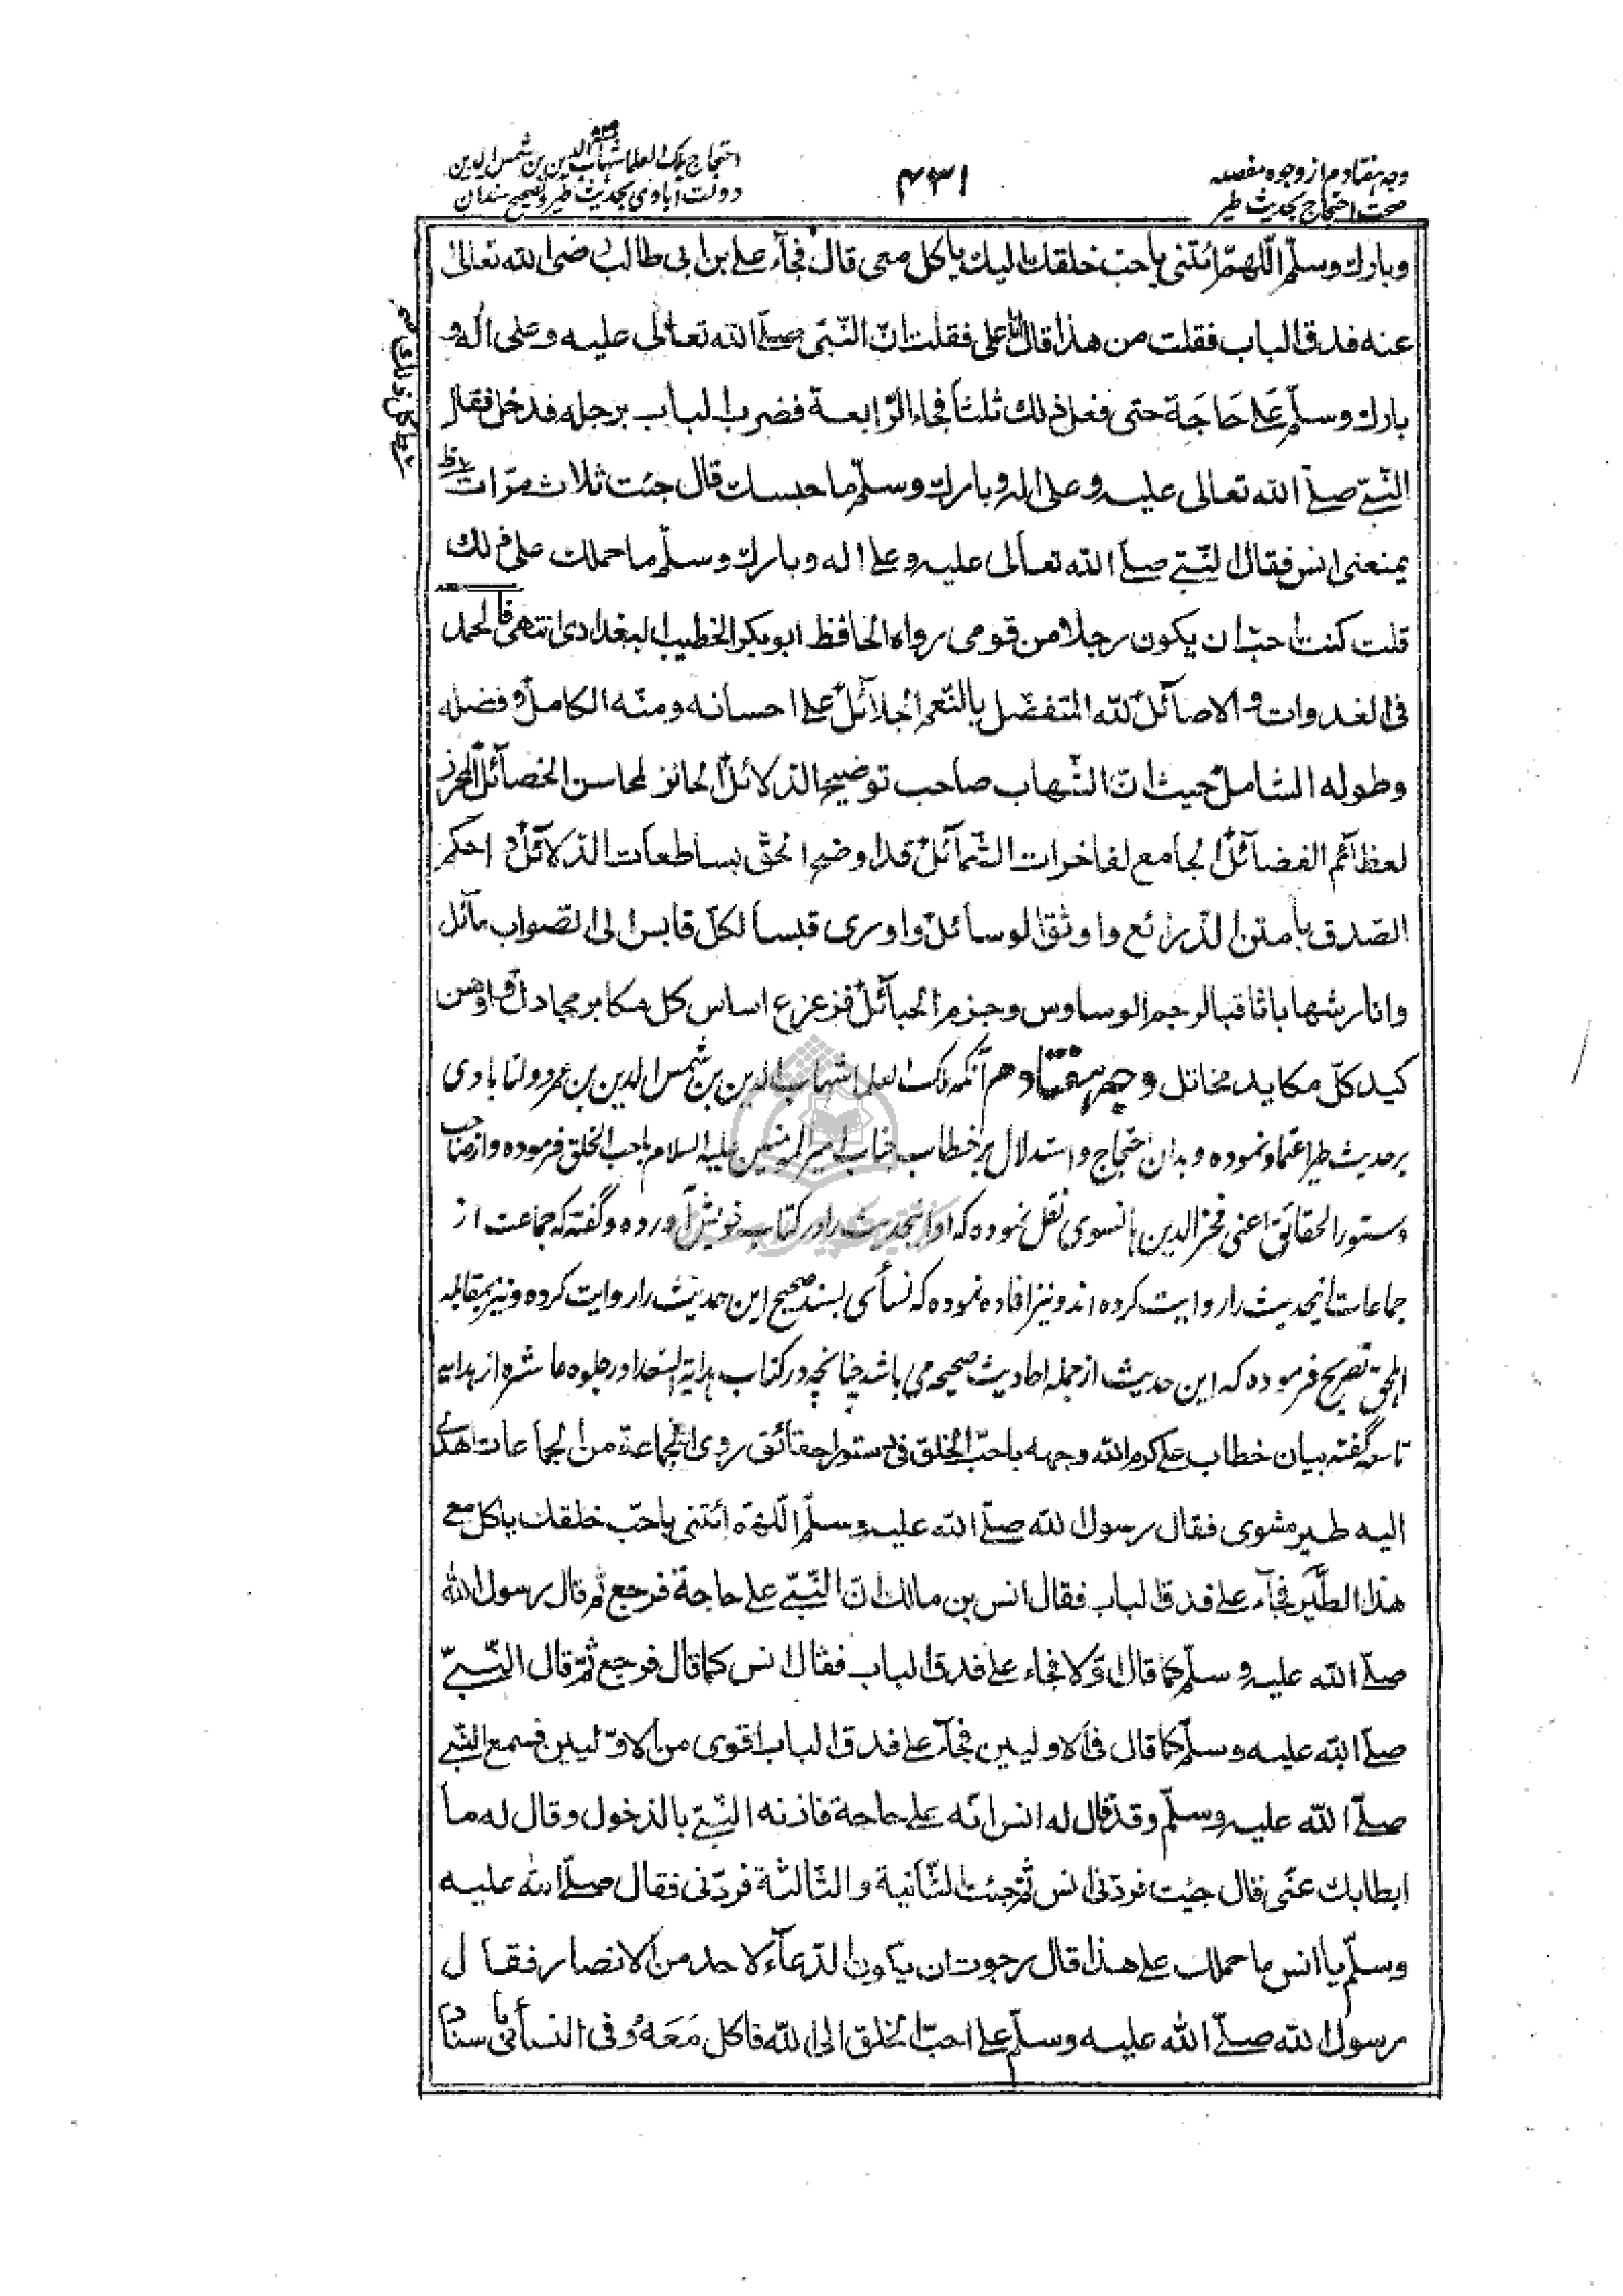 وجه هفتادم از وجوه مفصله
صحت احتجاج بحدیث طیر
۴۳۱
احتجاج ملک العلما شهاب الدین بن شمس الدین
دولت آبادی بحدیث طیر و تصحیح سندان
وبارك وسلّم اللّهمّ ائتنى باحبّ خلقك اليك ياكل معى قال فجآء على بن ابى طالب رضى الله تعالى
عنه فدقّ الباب فقلت من هذا قال انا على فقلت انّ النّبى صلّے الله تعالى عليه وعلى اله و
بارك وسلّم عَلے حَاجَة حتى فعل ذلك ثلثاً فجاء الرّابعة فضرب الباب برجله فدخل فقال
النّبىّ صلّے الله تعالى عليه وعلى اله وبارك وسلّم ما حبسك قال جئت ثلاث مرّات
يمنعنى انس فقال النّبىّ صلّے الله تعالى عليه وعلے اله وبارك وسلّم ما حملك على ذلك
قلت كنت احبّ ان يكون رجلا من قومى رواه الحافظ ابو بكر الخطيب البغدادى انتهى فالحمد
فى الغدوات و الاصآئل لله المتفضّل بالنّعم الجلآئل علے احسانه ومنّه الكامل و فضله
وطوله الشامل حيث انّ الشّهاب صاحب توضيح الدّلائل الحائز لمحاسن الخصآئل المحرز
لعظآئم الفضآئل الجامع لفاخرات الشّمآئل قد اوضح الحقّ بساطعات الدّلآئل و احكم
الصّدق بامتن الذّرائع واوثق الوسائل واورى قبسا لكلّ قابس الى الصّواب مآئل
وانار شهابا ثاقبا لرجم الوساوس وجزم الحبآئل فزعزع اساس كل مكابر مجادل و اوهن
كيد كلّ مكايد مخاتل وجه هفتادم آنکه ملک العلما شهاب الدین بن شمس الدین بن عمر دولتابادی
بر حدیث طیر اعتماد نموده و بدان احتجاج و استدلال بر خطاب جناب امیر المومنین علیه السلام باحب الخلق فرموده و از صاحب
دستور الحقائق اعنی فخر الدین هانسوی نقل نموده که او اینحدیث را در کتاب خویش آورده و گفته که جماعت از
جماعات اینحدیث را روایت کرده اند و نیز افاده نموده که نسائی بسند صحیح این حدیث را روایت کرده و نیز بمقابله
اهل حق تصریح فرموده که این حدیث از جمله احادیث صحیحه می باشد چنانچه در کتاب هدایة السعدا در جلوه عاشره از هدایه
تاسعه گفته بیان خطاب علے كرم الله وجهه باحبّ الخلق فى دستور الحقآئق روى الجماعة من الجماعات اهدى
اليه طير مشوى فقال رسول الله صلّے الله عليه وسلّم اللّهمّ ائتنى باحبّ خلقك ياكل معى
هذا الطّير فجآء علے فدق الباب فقال انس بن مالك انّ النّبىّ علے حاجة فرجع ثم قال رسول الله
صلّے الله عليه وسلّم كما قال اوّلا فجاء علے فدق الباب فقال انس كما قال فرجع ثمّ قال النّبىّ
صلّے الله عليه وسلّم كما قال فى الاوليين فجآء علے فدق الباب اقوى من الاوّليين فسمع النّبىّ
صلّے الله عليه وسلّم وقد قال له انس انّه علے حاجة فاذن له النّبىّ بالدّخول وقال له ما
ابطا بك عنّى قال جئت فردّنى انس ثمّ جئت الثّانية والثّالثة فردّنى فقال صلّے الله عليه
وسلّم يا انس ما حملك علے هذا قال رجوت ان يكون الدّعآء لاحد من الانصار فقال
رسول الله صلّے الله عليه وسلّم علے احبّ الخلق الى الله فاكل مَعَهُ وفى النسائى باسناد